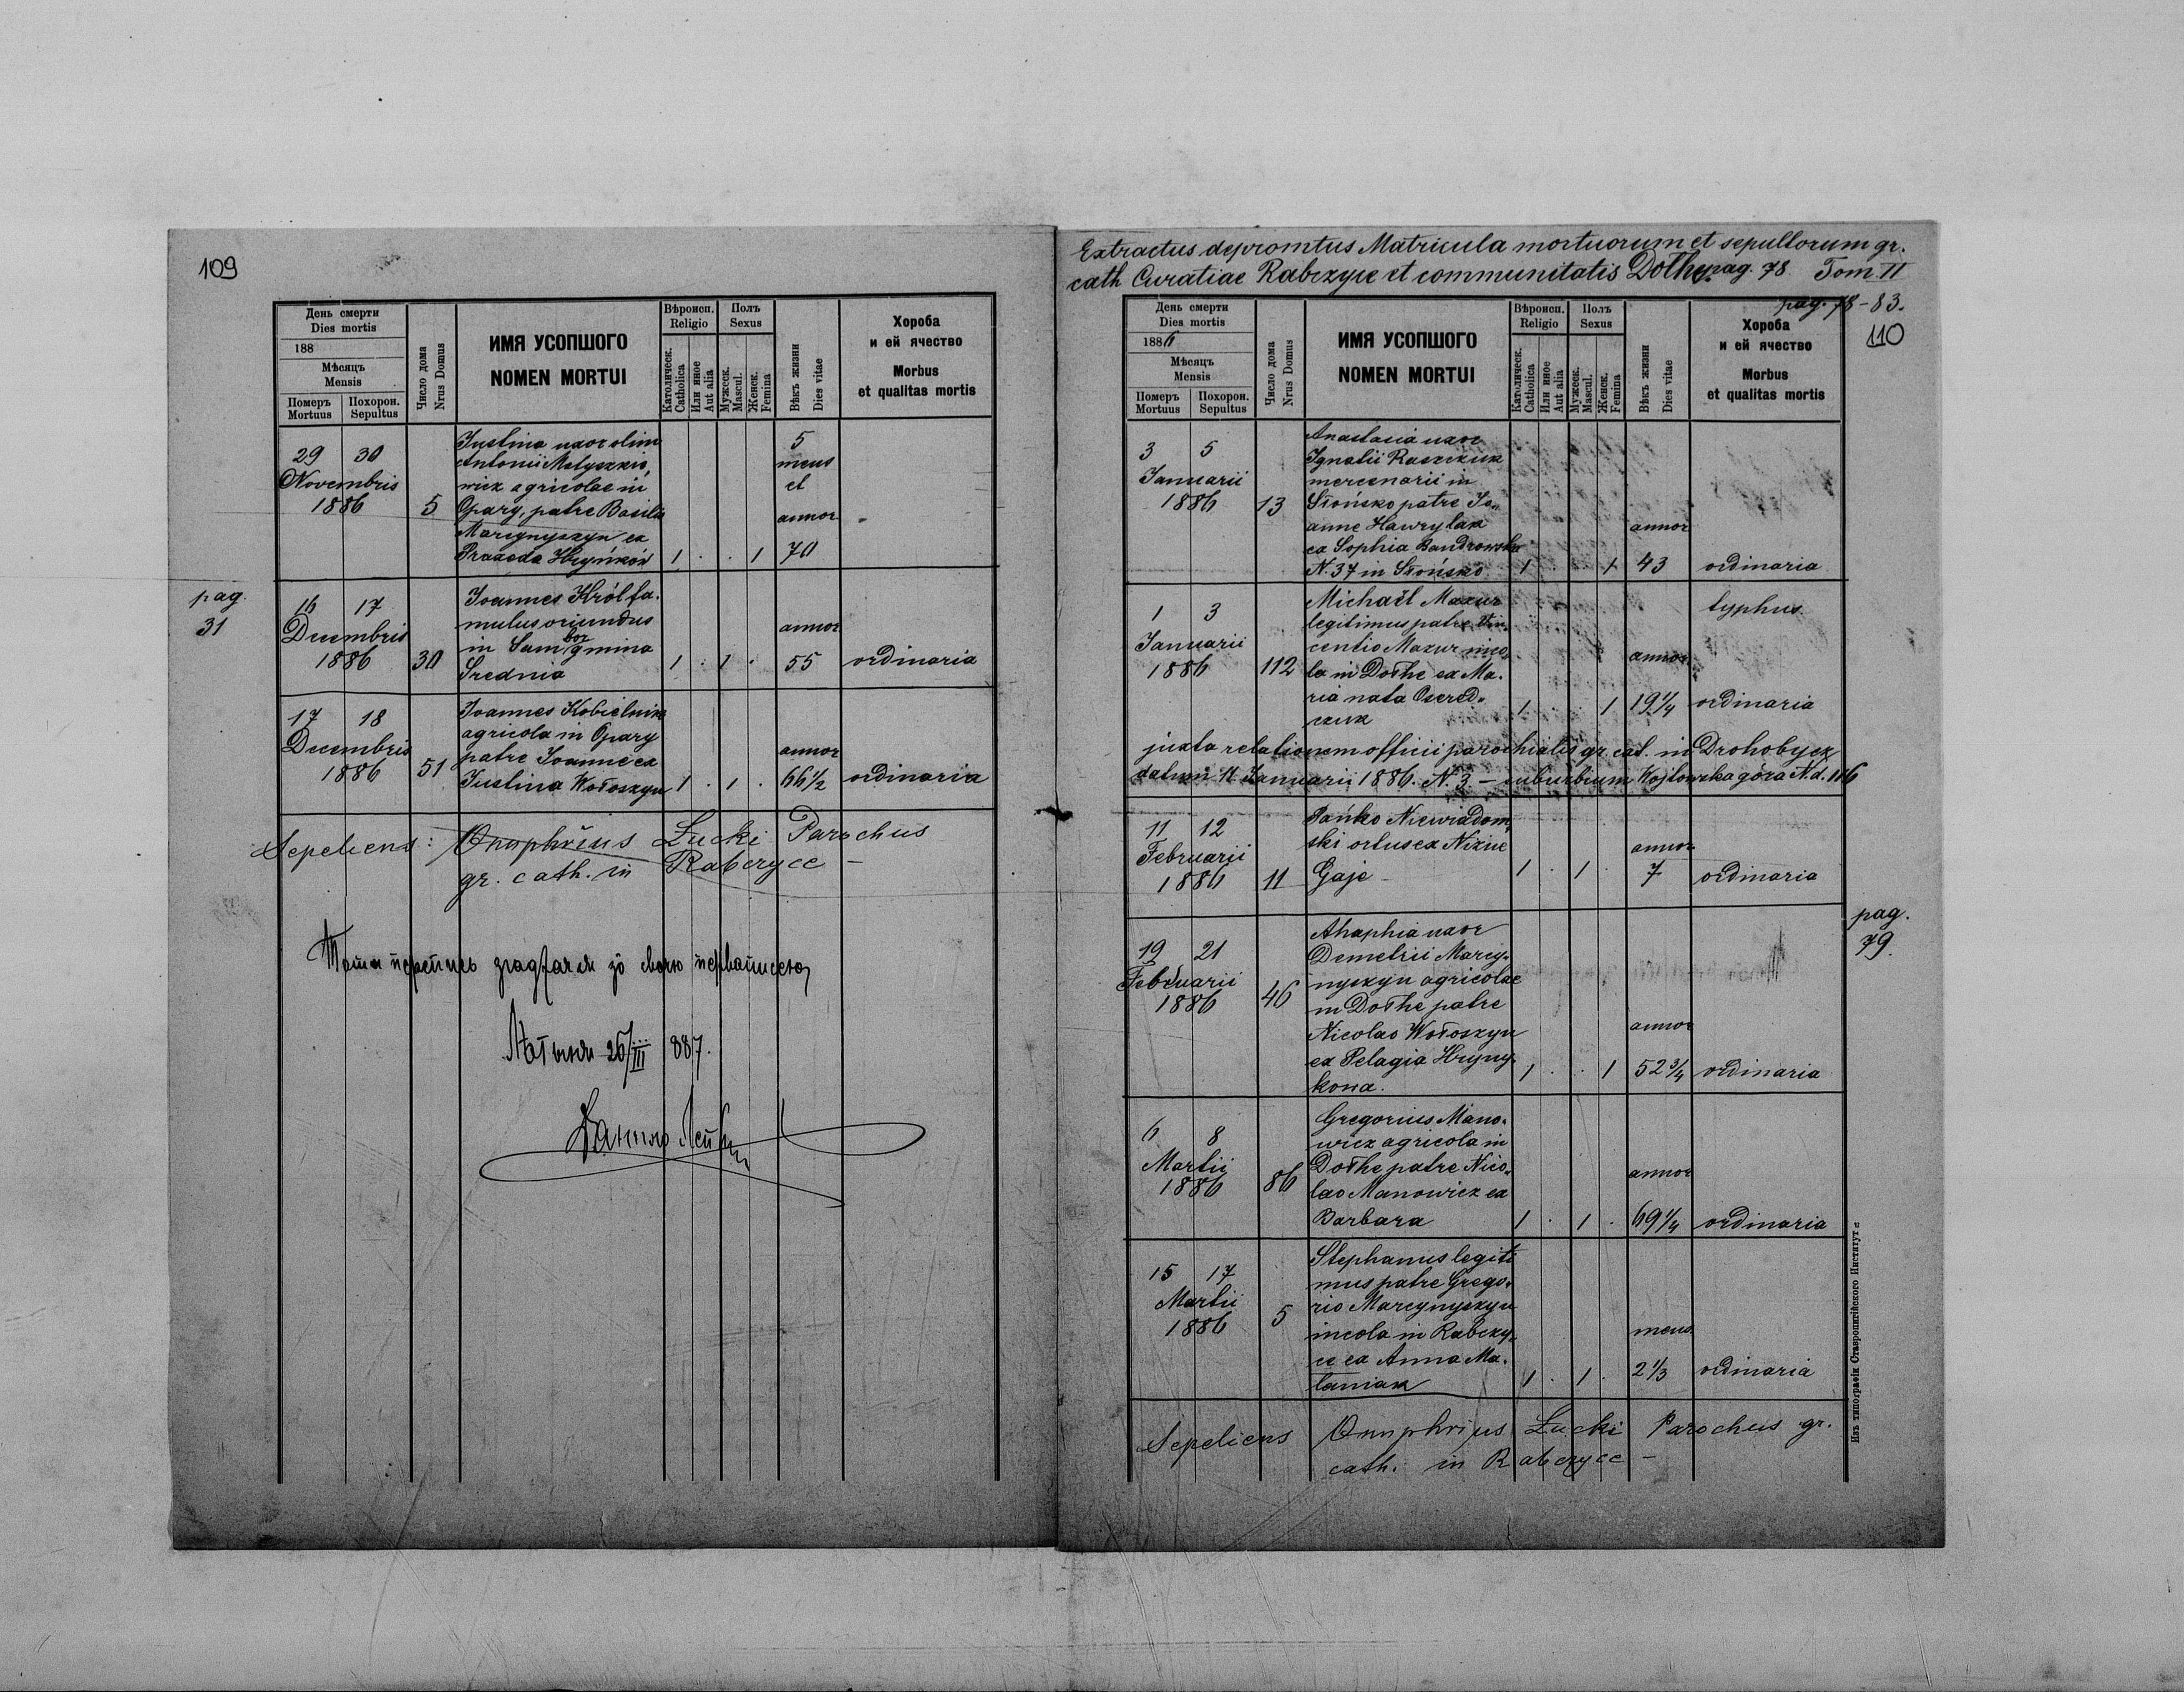 109
День смерти
Dies mortis
188
Мѣсяцъ
Mensis
Померъ
Mortuus
Похорон.
Sepultus
Число дома
Nrus Domus
ИМЯ УСОПШОГО
NOMEN MORTUI
Вѣроисп.
Religio
Католическ.
Catholica
Или иное
Aut alia
Полъ
Sexus
Мужеск.
Mascul.
Женск.
Femina
Вѣкъ жизни
Dies vitae
Хороба
и ей ячество
Morbus
et qualitas mortis
29 30
Novembris
1886
5
Justina uxor olim
Antonii Matyszkie,
wicz agricolae in
Opary, patre Basilio
Marcynyszyn ex
Praxeda Hryńków
1 . . 1
5
mens
et
annor
70
pag.
31
16 17
Decembris
1886
30
Joannes Król fa.
mulus oriundus
in Sambor gmina
Srednia
1 . 1 .
annor
55
ordinaria
17 18
Decembris
1886
51
Joannes Kobielnik
agricola in Opary
patre Joanne ex
Justina Wołoszyn
1 . 1 .
annor
66 1/2
ordinaria
Sepeliens: Onuphrius Łucki Parochus
gr. cath. in Rabczyce –
26/III 887.
Extractus depromtus Matricula mortuorum et sepultorum gr.
cath Curatiae Rabczyce et communitatis Dołhe pag. 78 Tom II
pag. 78-83.
110
День смерти
Dies mortis
1886
Мѣсяцъ
Mensis
Померъ
Mortuus
Похорон.
Sepultus
Число дома
Nrus Domus
ИМЯ УСОПШОГО
NOMEN MORTUI
Вѣроисп.
Religio
Католическ.
Catholica
Или иное
Aut alia
Полъ
Sexus
Мужеск.
Mascul.
Женск.
Femina
Вѣкъ жизни
Dies vitae
Хороба
и ей ячество
Morbus
et qualitas mortis
3 5
Januarii
1886
13
Anastasia uxor
Ignatii Raszczuk
mercenarii in
Słońsko patre Jo„
anne Hawrylak
ex Sophia Bandrowska
N. 37 in Słońsko
1 . . 1
annor
43
ordinaria
1 3
Januarii
1886
112
Michaël Mazur
legitimus patre Vin„
centio Mazur inco
la in Dołhe ex Ma.
ria nata Ozered„
czuk
1 . . 1
annor
19 1/4
typhus
ordinaria
juxta relationem officii parochialis gr. cat. in Drohobycz
datum 11 Januarii 1886. N. 3 – suburbium Wojtowska góra N.d. 116
11 12
Februarii
1886
11
Pańko Niewiadom„
ski ortus ex Niżne
Gaje –
1 . 1 .
annor
7
ordinaria
pag.
79.
19 21
Februarii
1886
46
Ahaphia uxor
Demetrii Marcy„
nyszyn agricolae
in Dołhe patre
Nicolao Wołoszyn
ex Pelagia Hryny„
kowa.
1 . . 1
annor
52 3/4
ordinaria
6 8
Martii
1886
86
Gregorius Mano.
wicz agricola in
Dołhe patre Nico„
lao Manowicz ex
Barbara
1 . 1 .
annor
69 1/4
ordinaria
15 17
Martii
1886
5
Stephanus legiti
mus patre Grego„
rio Marcynyszyn
incola in Rabczy„
ce ex Anna Ma.
laniak
1 . 1 .
mens
2 1/3
ordinaria
Sepeliens Onuphrius Łucki Parochus gr.
cath. in Rabczyce –
Изъ типографіи Ставропигійского Института